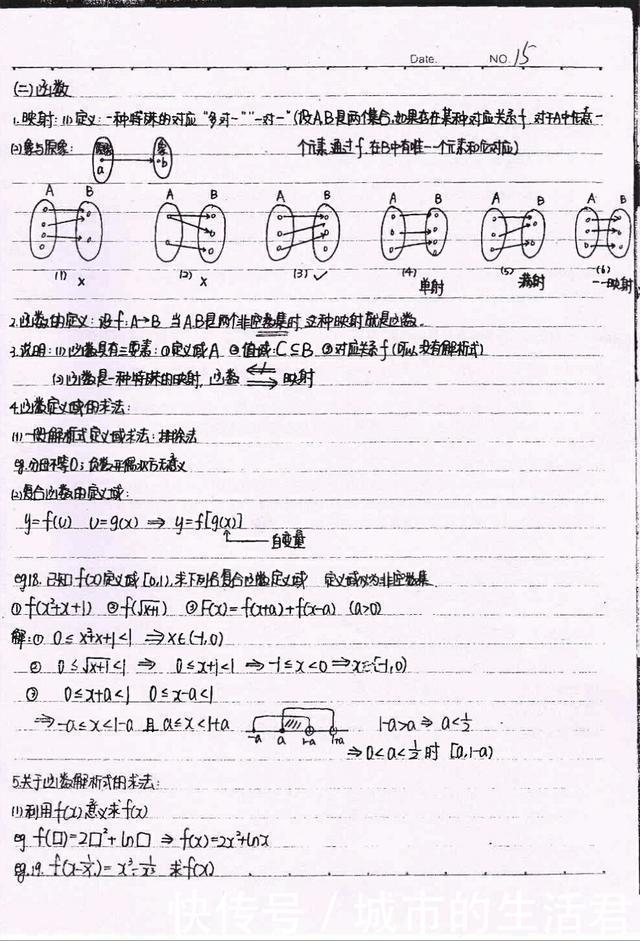 Date. NO. 15
(二)函数
1.映射:(1)定义:一种特殊的对应"多对一""一对一"(设A、B是两个集合,如果存在某种对应关系f,对于A中任意一
(2)象与原象: 原象 a 象 b 个元素通过f,在B中有唯一一个元素和它对应)
A B A B A B A B A B A B
(1) × (2) × (3) ✓ (4) 单射 (5) 满射 (6) 一一映射
2.函数的定义:设f:A→B 当A、B是两个非空数集时,这种映射就是函数。
3.说明:(1)函数具有三要素:①定义域A ②值域:C⊆B ③对应关系f(可以没有解析式)
(2)函数是一种特殊的映射, 函数 映射
4.函数定义域的求法:
(1)一般解析式定义域求法:排除法
eg.分母不等0;负数开偶次方无意义
(2)复合函数的定义域:
y=f(u) u=g(x) ⇒ y=f[g(x)]
自变量
eg18.已知f(x)定义域[0,1),求下列各复合函数定义域 定义域必为非空数集
①f(x²+x+1) ②f(√x+1) ③F(x)=f(x+a)+f(x-a) (a>0)
解:① 0≤x²+x+1<1 ⇒x∈(-1,0)
② 0≤√x+1<1 ⇒ 0≤x+1<1 ⇒-1≤x<0⇒x∈[-1,0)
③ 0≤x+a<1 0≤x-a<1
⇒-a≤x<1-a 且 a≤x<1+a -a a 1-a 1+a 1-a>a ⇒ a<1/2
⇒0<a<1/2时 [a,1-a)
5.关于函数解析式的求法:
(1)利用f(x)意义求f(x)
eg f(□)=2□²+ln□ ⇒ f(x)=2x²+lnx
eg.19. f(x-1/x)=x³-1/x³ 求f(x)
快传号/城市的生活君